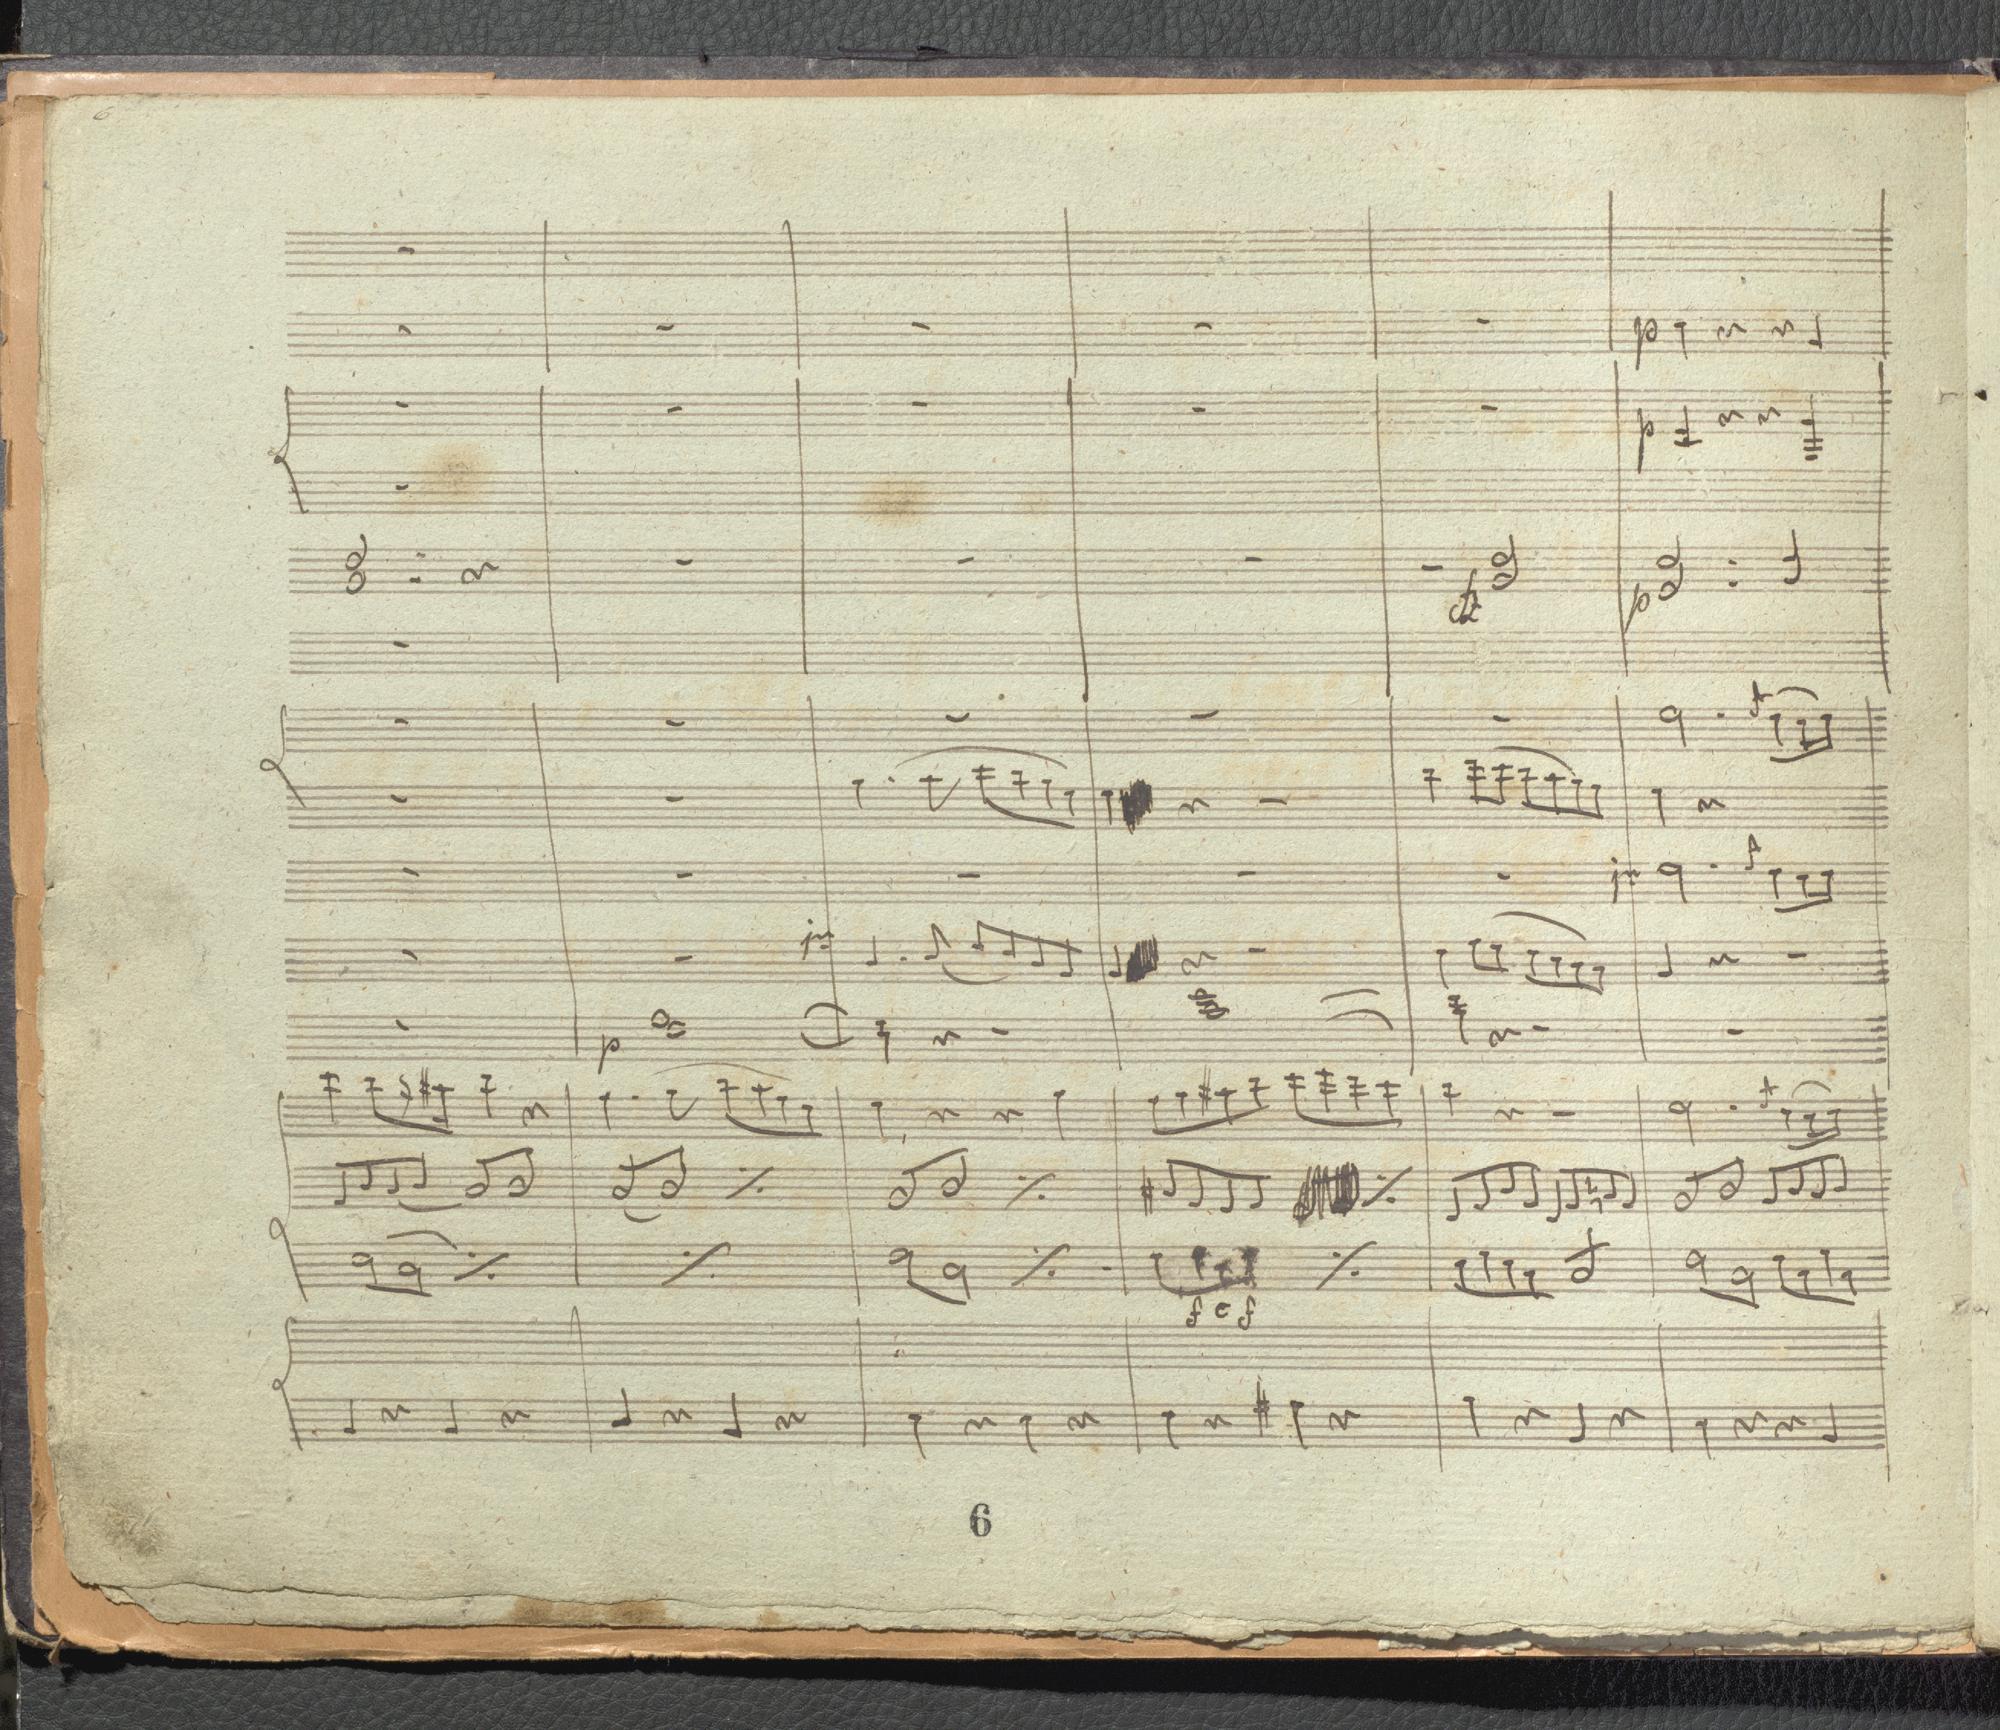 6
p
p
p
p
f e f
6